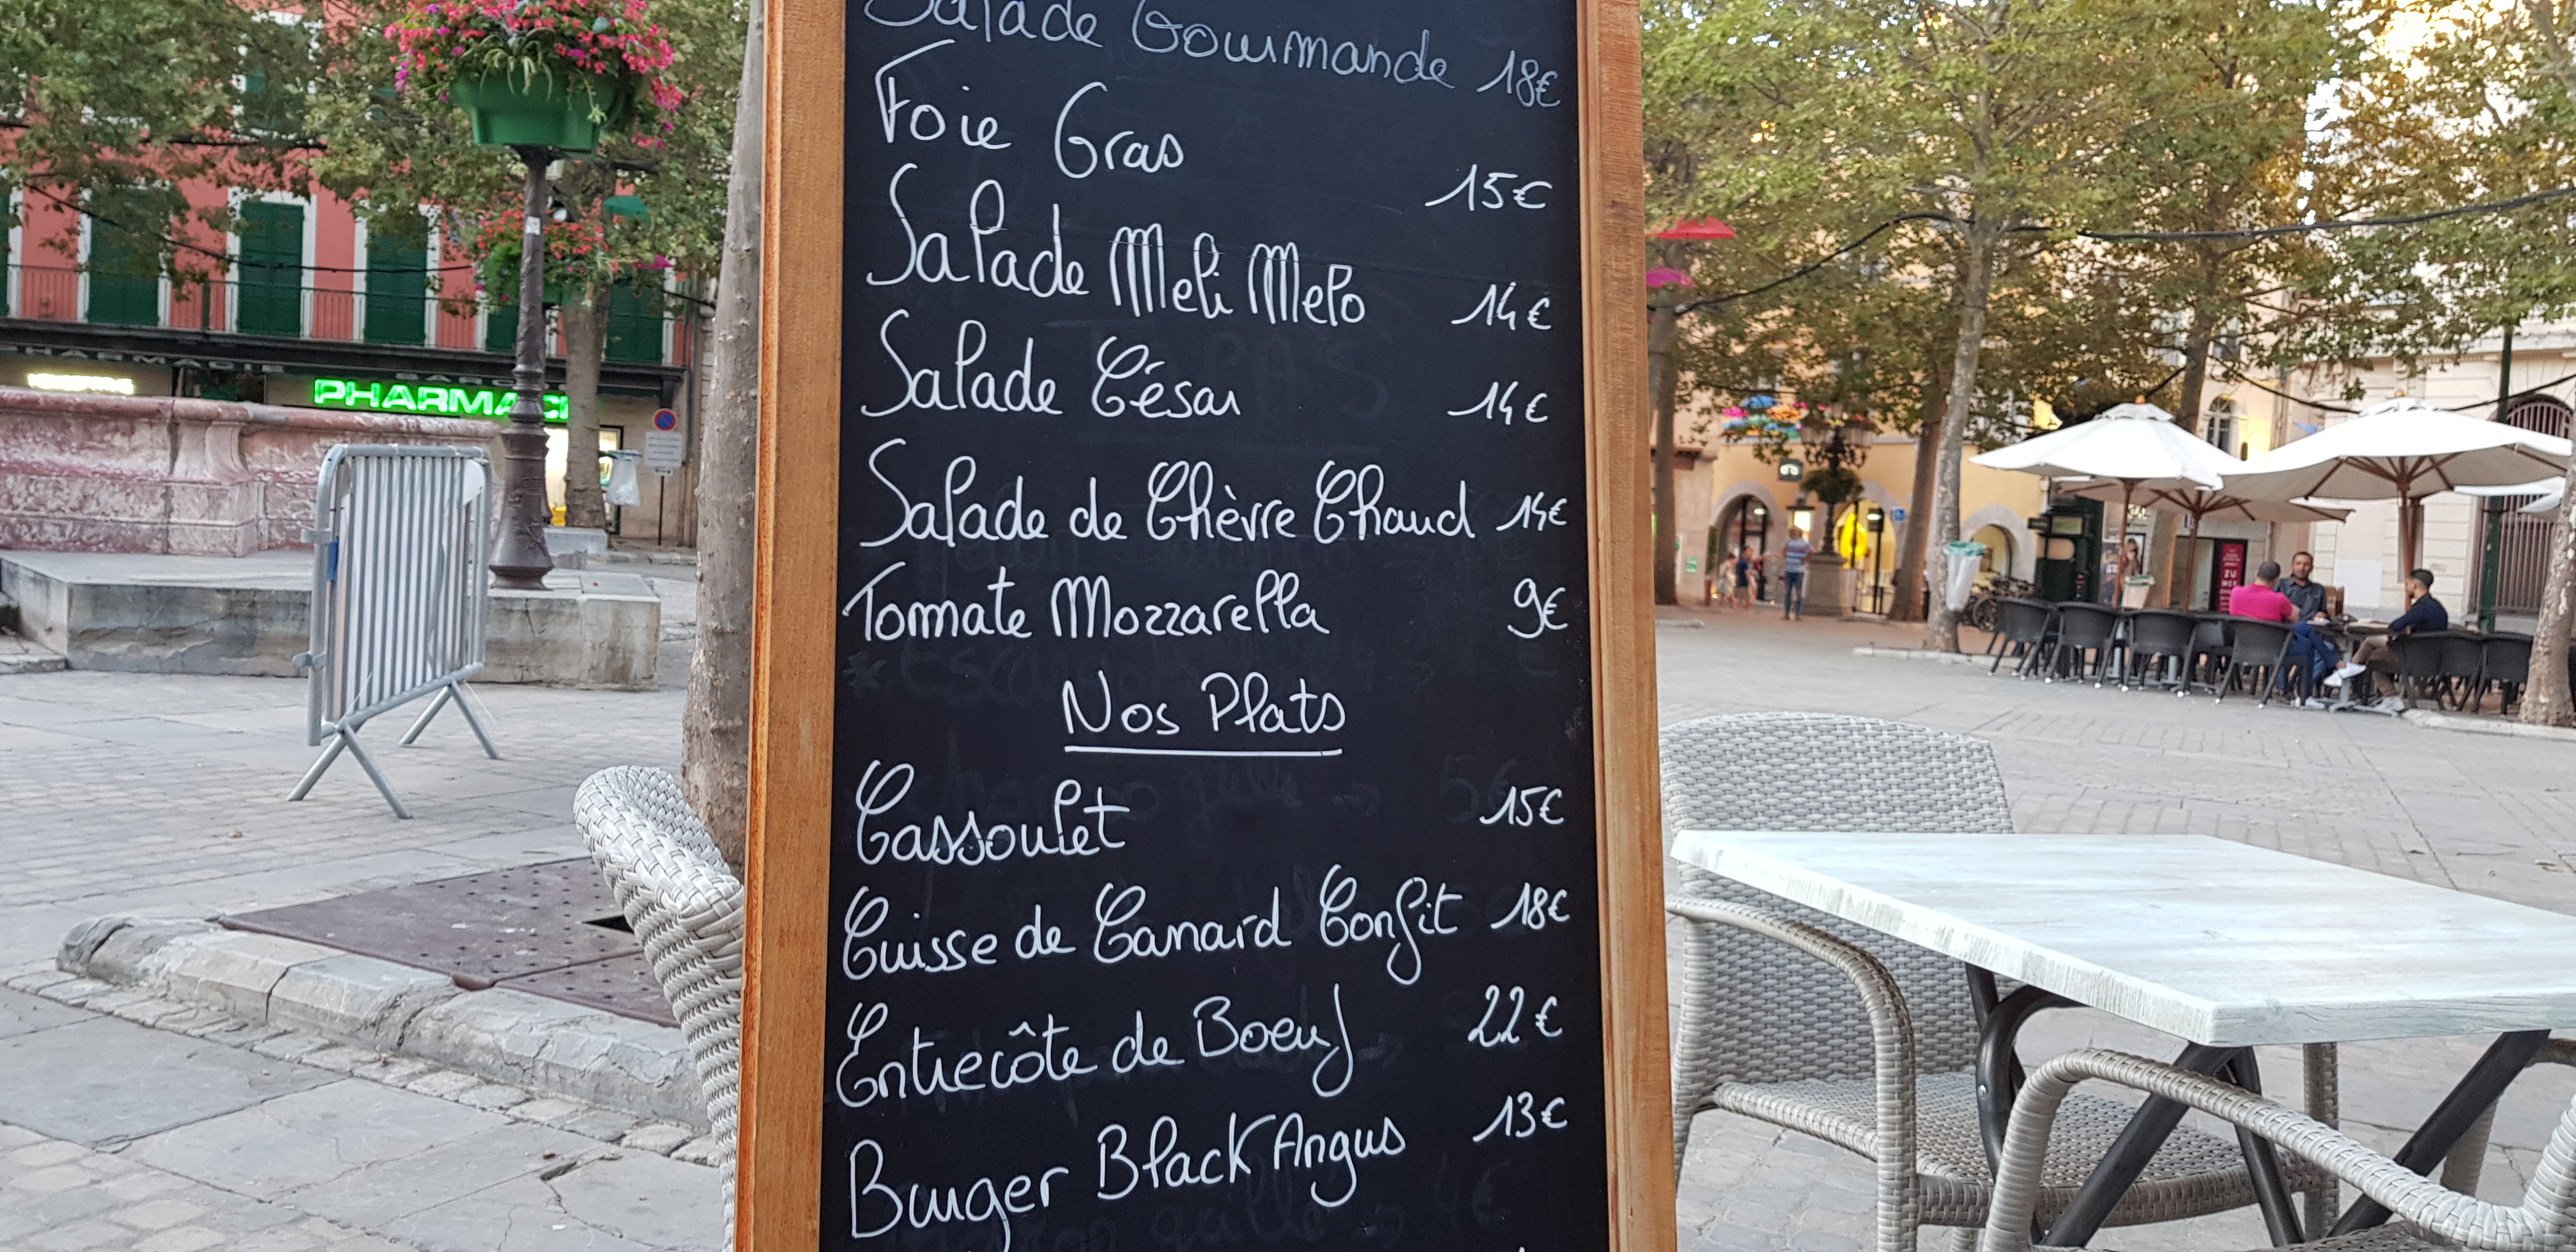 Salade Gourmande 18€
Foie Gras 15€
Salade Meli Melo 14€
Salade César 14€
Salade de Chèvre Chaud 14€
Tomate Mozzarella 9€
Nos Plats
Cassoulet 15€
Cuisse de Canard Confit 18€
Entrecôte de Boeuf 22€
Burger Black Angus 13€
PHARMACI